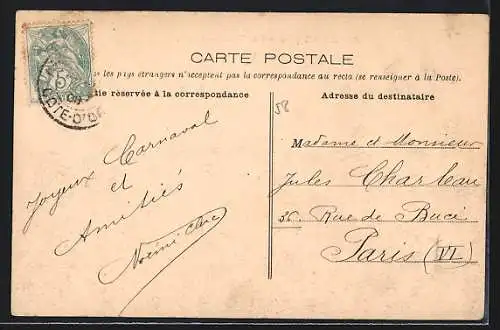 CARTE POSTALE
les pays étrangers n'acceptent pas la correspondance au recto (se renseigner à la Poste).
tie réservée à la correspondance
Adresse du destinataire
5
COTE-D'OR
58
Joyeux Carnaval
et
Amitiés
Madame et Monsieur
Jules Charleau
36 Rue de Buci
Paris (VI)